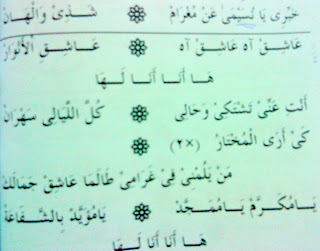 خَبِّرِى يَا لَسِيْمَىٰ عَنْ مُغْرَامٍ ۞ شَذِىْ وَالْهَانْ
عَاشِقْ آه عَاشِقْ آه ۞ عَاشِقِ الْأَلْوَانْ
هَا أَنَا أَنَا لَهَا
أَنْتِ عَنِّىْ تَشْتَكِىْ وَحَالِى ۞ كُلَّ اللَّيَالِى سَهْرَانْ
كَىْ أَرَى الْمُخْتَارْ (×٢) ۞
مَنْ يَلُمْنِىْ فِىْ غَرَامِىْ طَالَمَا عَاشِقْ جَمَالَكْ
يَامُكَرَّمْ يَامُمَجَّدْ ۞ يَامُؤَيَّدْ بِالشَّفَاعَةْ
هَا أَنَا أَنَا لَهَا